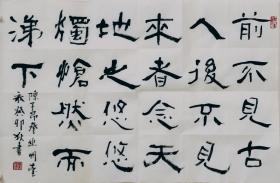 前不見古
人後不見
來者念天
地之悠悠
獨愴然而
涕下
陳子昂登幽州臺